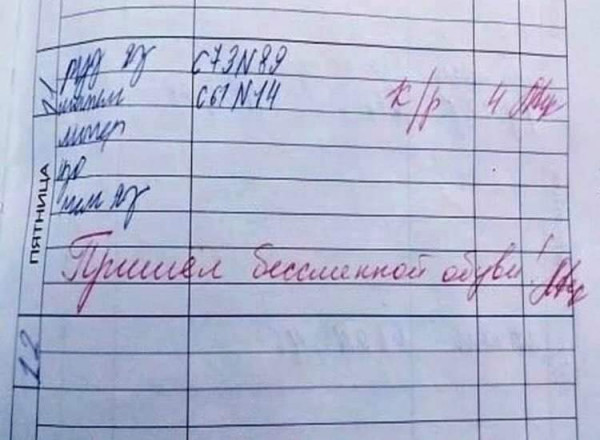 рус яз С73N89
матем С61N14 К/р 4
литер
изо
яз
ПЯТНИЦА
Пришел бессменной обуви!
12